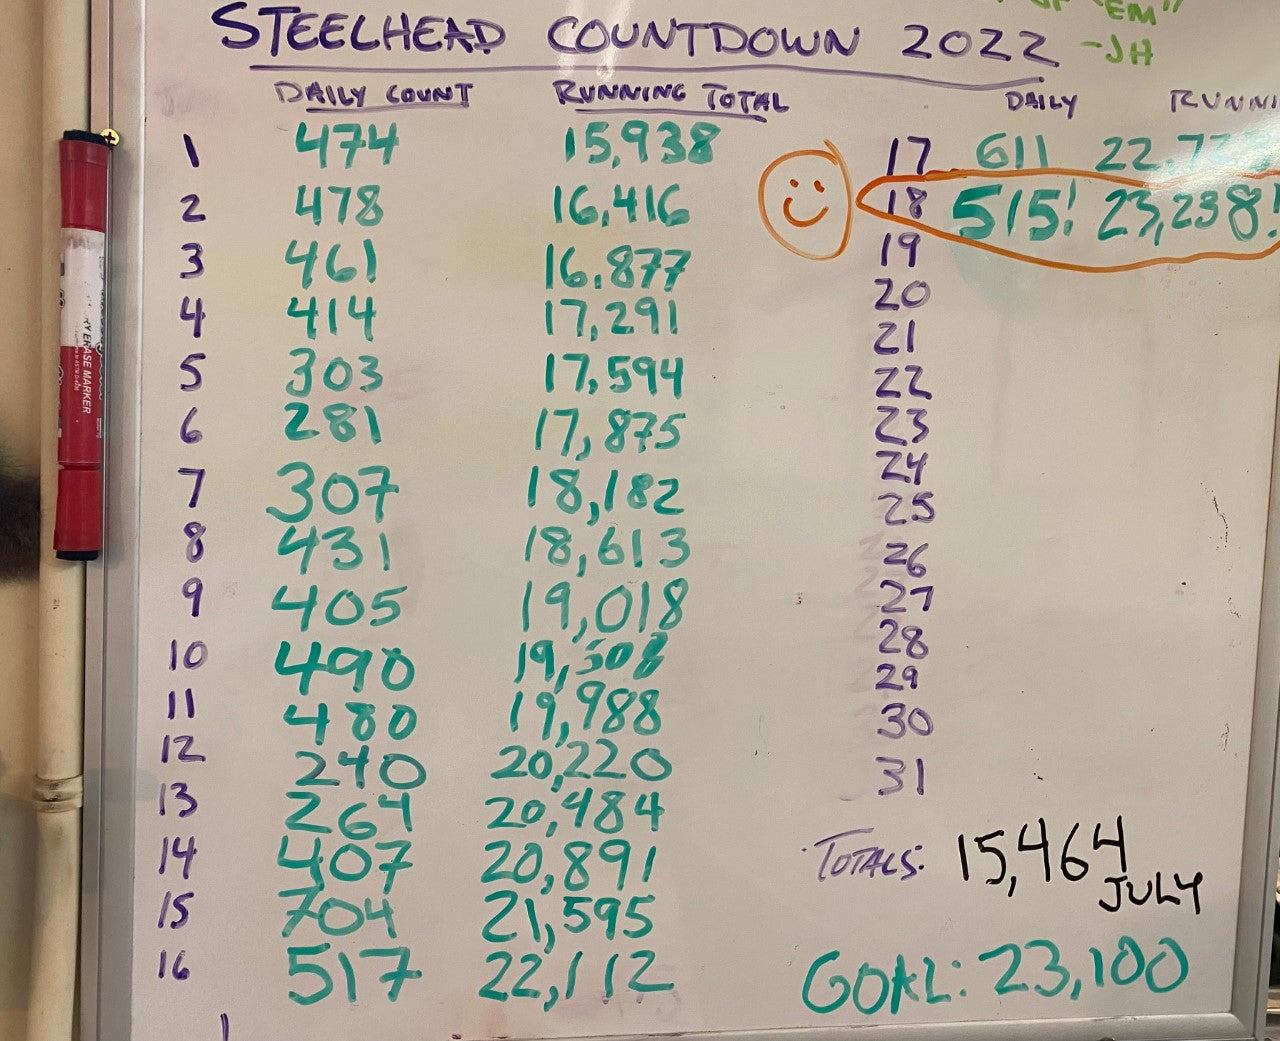 "EM"
-JH
STEELHEAD COUNTDOWN 2022
DAILY COUNT RUNNING TOTAL
1 474 15,938
2 478 16,416
3 461 16,877
4 414 17,291
5 303 17,594
6 281 17,875
7 307 18,182
8 431 18,613
9 405 19,018
10 490 19,508
11 480 19,988
12 240 20,220
13 264 20,484
14 407 20,891
15 704 21,595
16 517 22,112
DAILY RUNNI
17 611 22,72
18 515! 23,238!
19
20
21
22
23
24
25
26
27
28
29
30
31
TOTALS: 15,464
JULY
GOAL: 23,100
ERASE MARKER